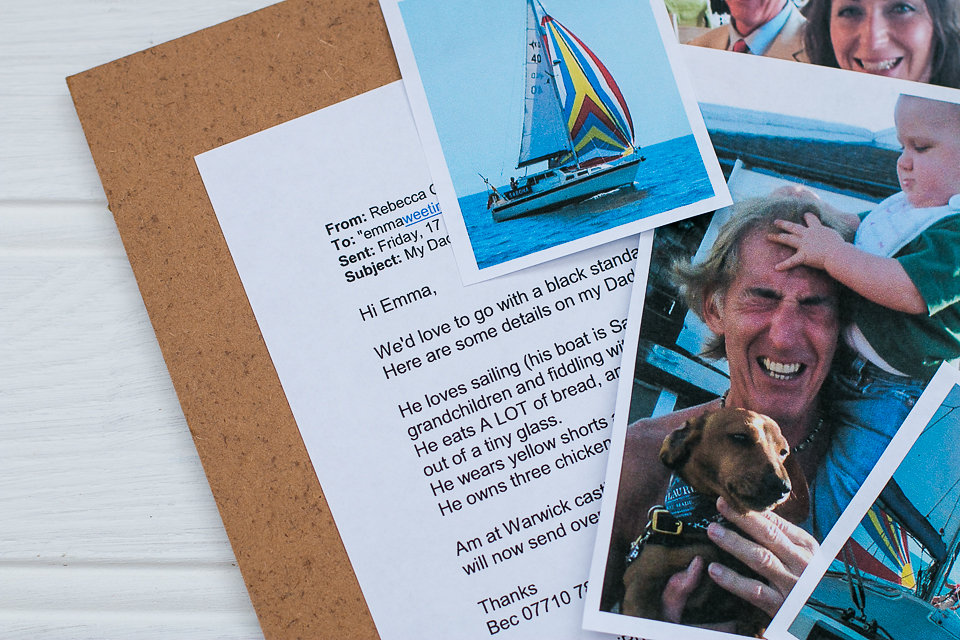 From: Rebecca
To: "emmaweetin
Sent: Friday, 17
Subject: My Dad
Hi Emma,
We'd love to go with a black standa
Here are some details on my Dad
He loves sailing (his boat is Sa
grandchildren and fiddling wi
He eats A LOT of bread, an
out of a tiny glass.
He wears yellow shorts
He owns three chicken
Am at Warwick cast
will now send over
Thanks
Bec 07710 78
40
SASCHA
LAUR